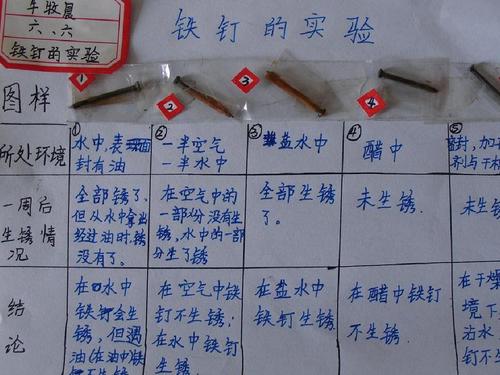 车牧晨
六、六
铁钉的实验
铁钉的实验
图样
1
2
3
4
所处环境
① 水中,表面
封有油
② 一半空气
一半水中
③ 盐水中
④ 醋中
⑤
密封,加
剂与干
一周后
生锈情
况
全部锈了、
但从水中拿出
经过油时,锈
没有了。
在空气中的
一部分没有生
锈,水中的一部
分生了锈
全部生锈
了。
未生锈.
未生锈
结
论
在水中
铁钉会生
锈,但遇
油(在油中)铁
在空气中铁
钉不生锈;
在水中铁钉
生锈.
在盐水中
铁钉生锈
在醋中铁钉
不生锈.
在干燥
境下
沾水
钉不生